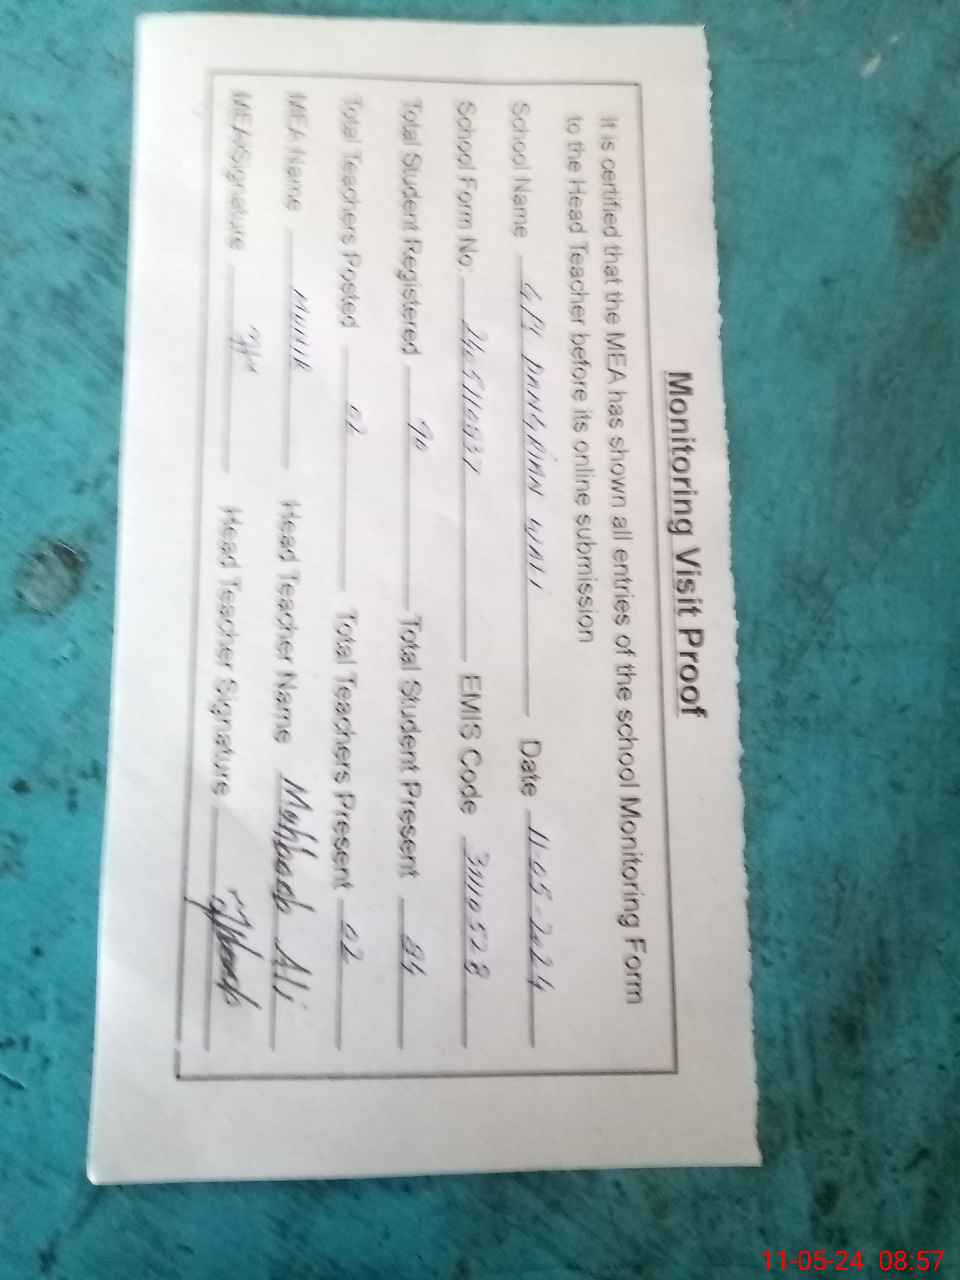 Monitoring Visit Proof
It is certified that the MEA has shown all entries of the school Monitoring Form
to the Head Teacher before its online submission
School Name WALI Date 11-05-2024
School Form No. EMIS Code 31110528
Total Student Registered 90 Total Student Present 84
Total Teachers Posted 02 Total Teachers Present 02
MEA Name MUNIR Head Teacher Name Mehboob Ali
MEA Signature Head Teacher Signature
11-05-24 08:57